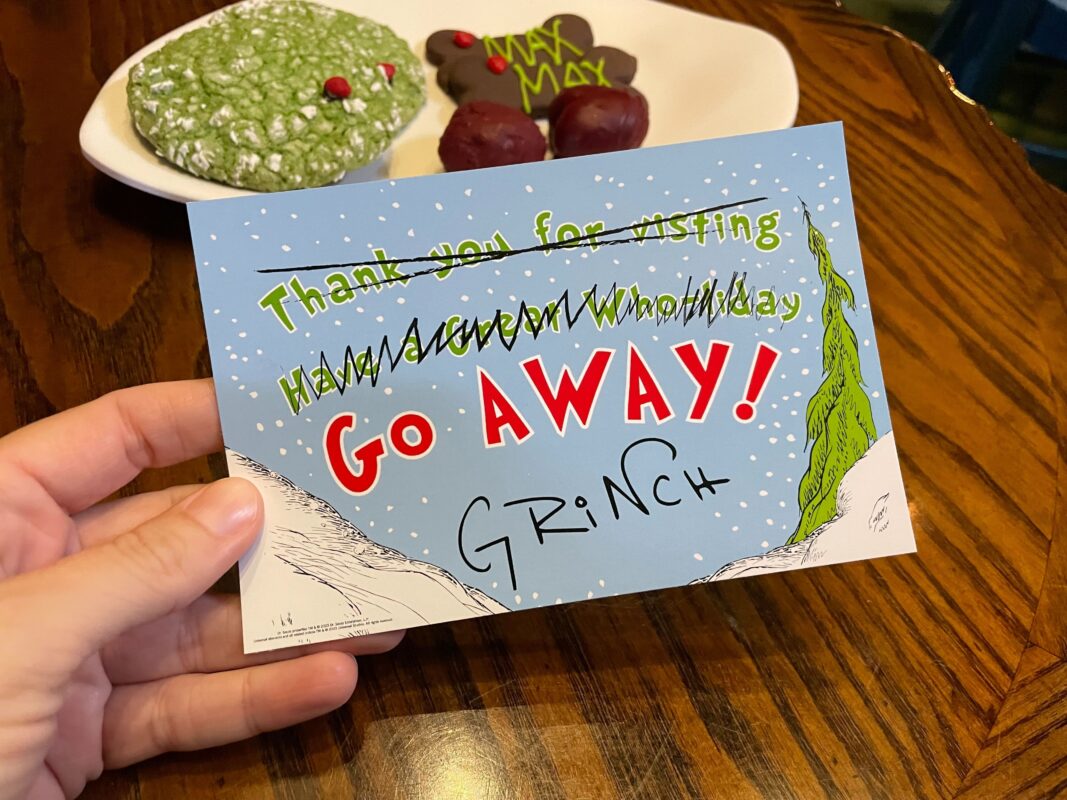 MAX
MAX
Thank you for visting
Have a Great Who-liday
Go AWAY!
GRiNCH